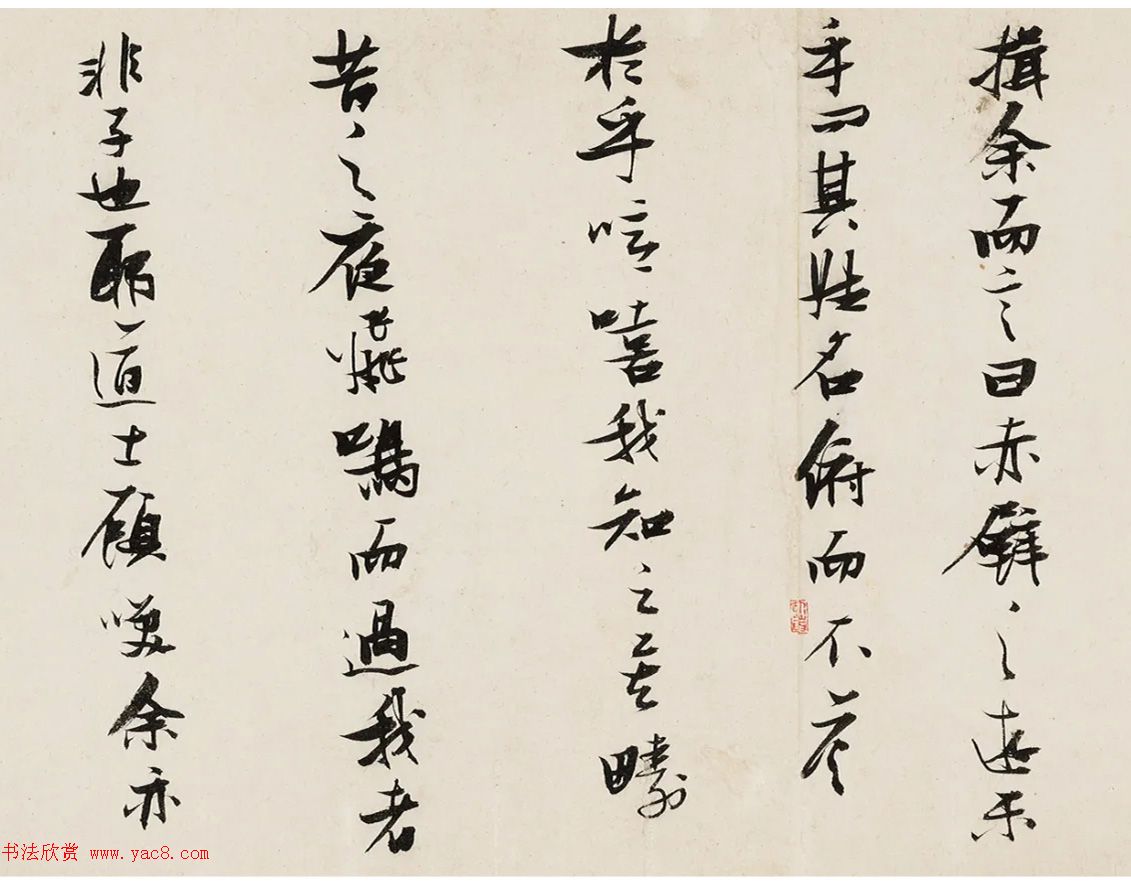 揖余而言曰赤壁之遊樂
乎問其姓名俯而不荅
於乎噫嘻我知之矣疇
昔之夜飛鳴而過我者
非子也耶道士顧咲余亦
书法欣赏 www.yac8.com